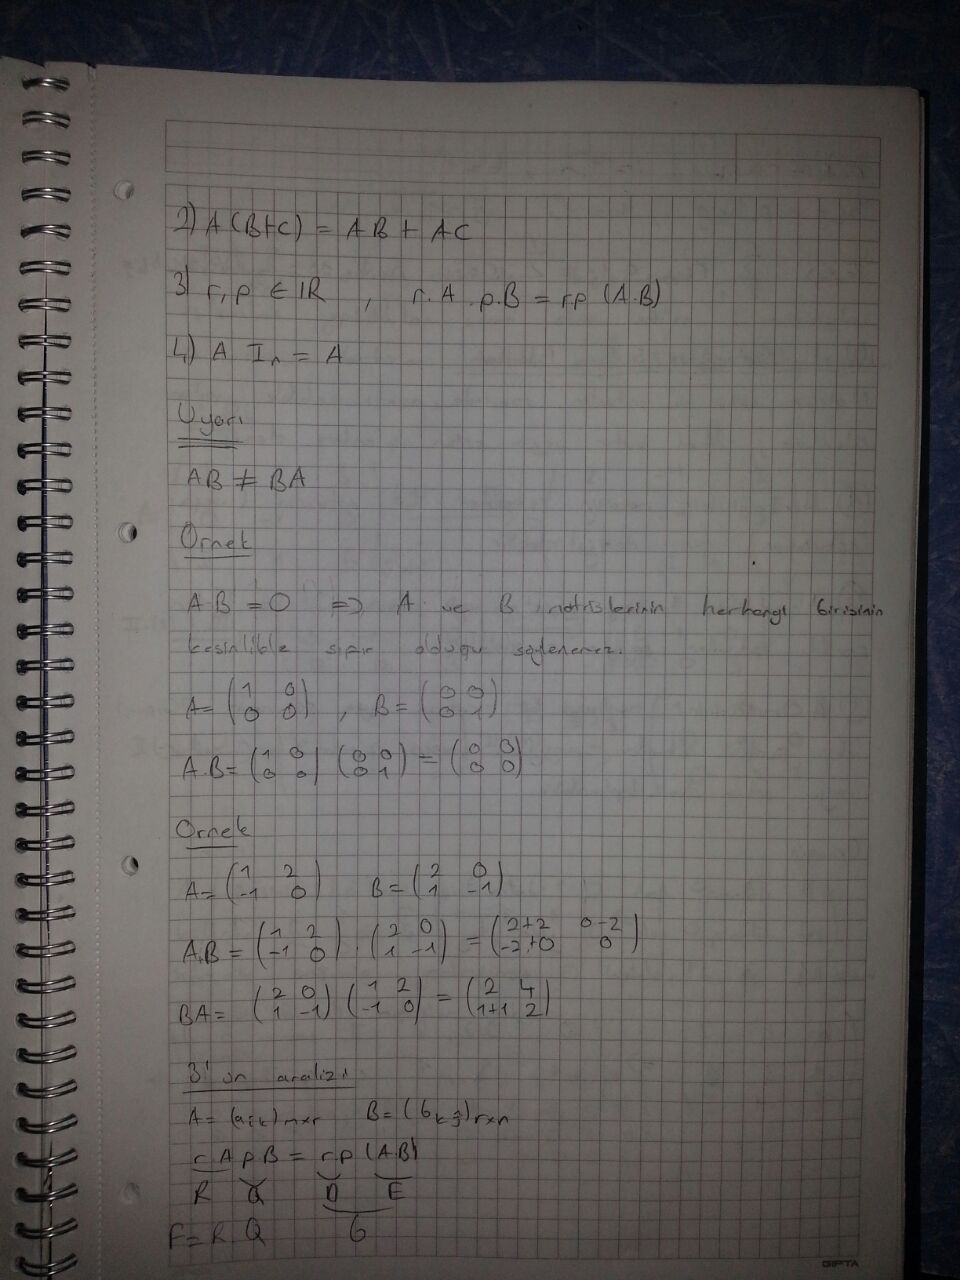 2) A(B+C) = AB + AC
3) r,p ∈ IR , r.A . p.B = r.p (A.B)
4) A Iₙ = A
Uyarı
AB ≠ BA
Örnek
A.B = 0 => A ve B matrislerinin herhangi birisinin
kesinlikle sıfır olduğu söylenemez.
A = (1 0 / 0 0) , B = (0 0 / 0 1)
A.B = (1 0 / 0 0) (0 0 / 0 1) = (0 0 / 0 0)
Örnek
A = (1 2 / -1 0) B = (2 0 / 1 -1)
A.B = (1 2 / -1 0) . (2 0 / 1 -1) = (2+2 0-2 / -2+0 0)
BA = (2 0 / 1 -1) (1 2 / -1 0) = (2 4 / 1+1 2)
3' ün analizi
A = (aᵢₖ)ₘₓᵣ B = (bₖⱼ)ᵣₓₙ
r A p B = r.p (A.B)
R Q D E
F = R Q G
GIPTA